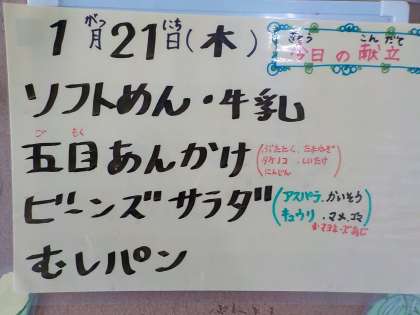 1月21日(木)
きょう こんだて
今日の献立
ソフトめん・牛乳
五目あんかけ
(ぶたにく、たまねぎ
タケノコ、しいたけ
にんじん)
ビーンズサラダ
(アスパラ、かいそう
キュウリ、マメ、ゴマ)
むしパン